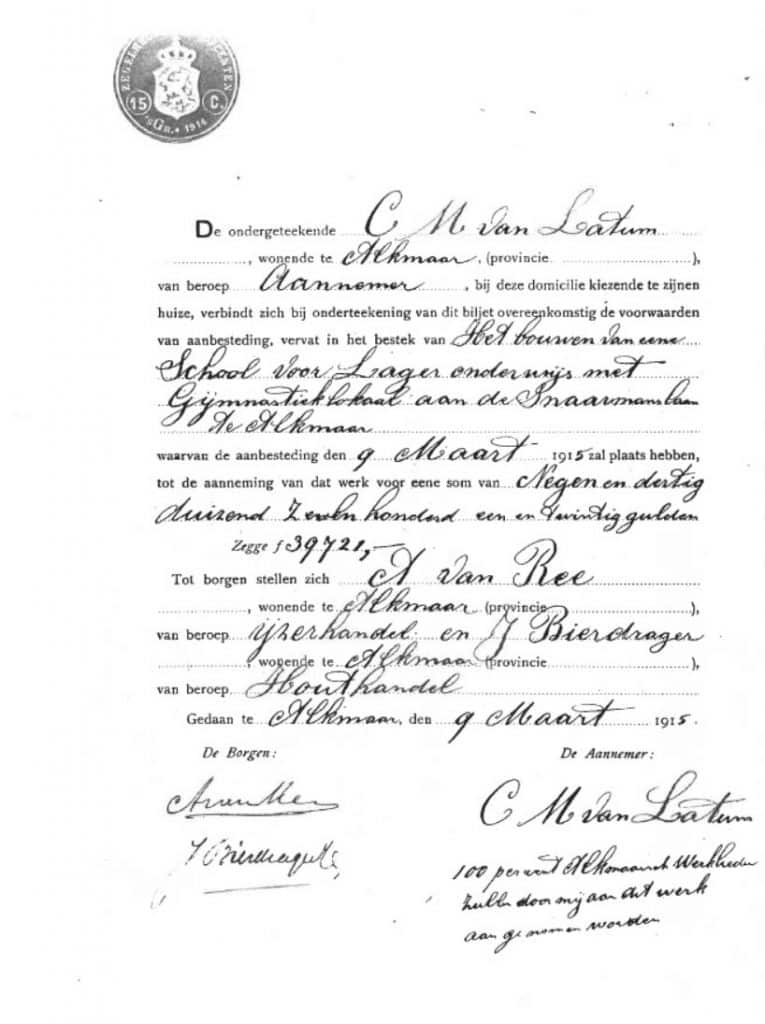 ZEGEL
15 C.
'sGR. 1914
De ondergeteekende C M van Latum
, wonende te Alkmaar, (provincie ),
van beroep Aannemer, bij deze domicilie kiezende te zijnen
huize, verbindt zich bij onderteekening van dit biljet overeenkomstig de voorwaarden
van aanbesteding, vervat in het bestek van Het bouwen van eene
School voor Lager onderwijs met
Gijmnastieklokaal aan de Snaarmanslaan
te Alkmaar
waarvan de aanbesteding den 9 Maart 1915 zal plaats hebben,
tot de aanneming van dat werk voor eene som van Negen en dertig
duizend Zeven honderd een en twintig gulden
Zegge f 39721,-
Tot borgen stellen zich A van Ree
, wonende te Alkmaar (provincie ),
van beroep ijzerhandel en J Bierdrager
, wonende te Alkmaar (provincie ),
van beroep Houthandel
Gedaan te Alkmaar, den 9 Maart 1915.
De Borgen: De Aannemer:
C M van Latum
J Bierdrager
100 percent Alkmaarsch Werklieden
zullen door mij aan dit werk
aangenomen worden